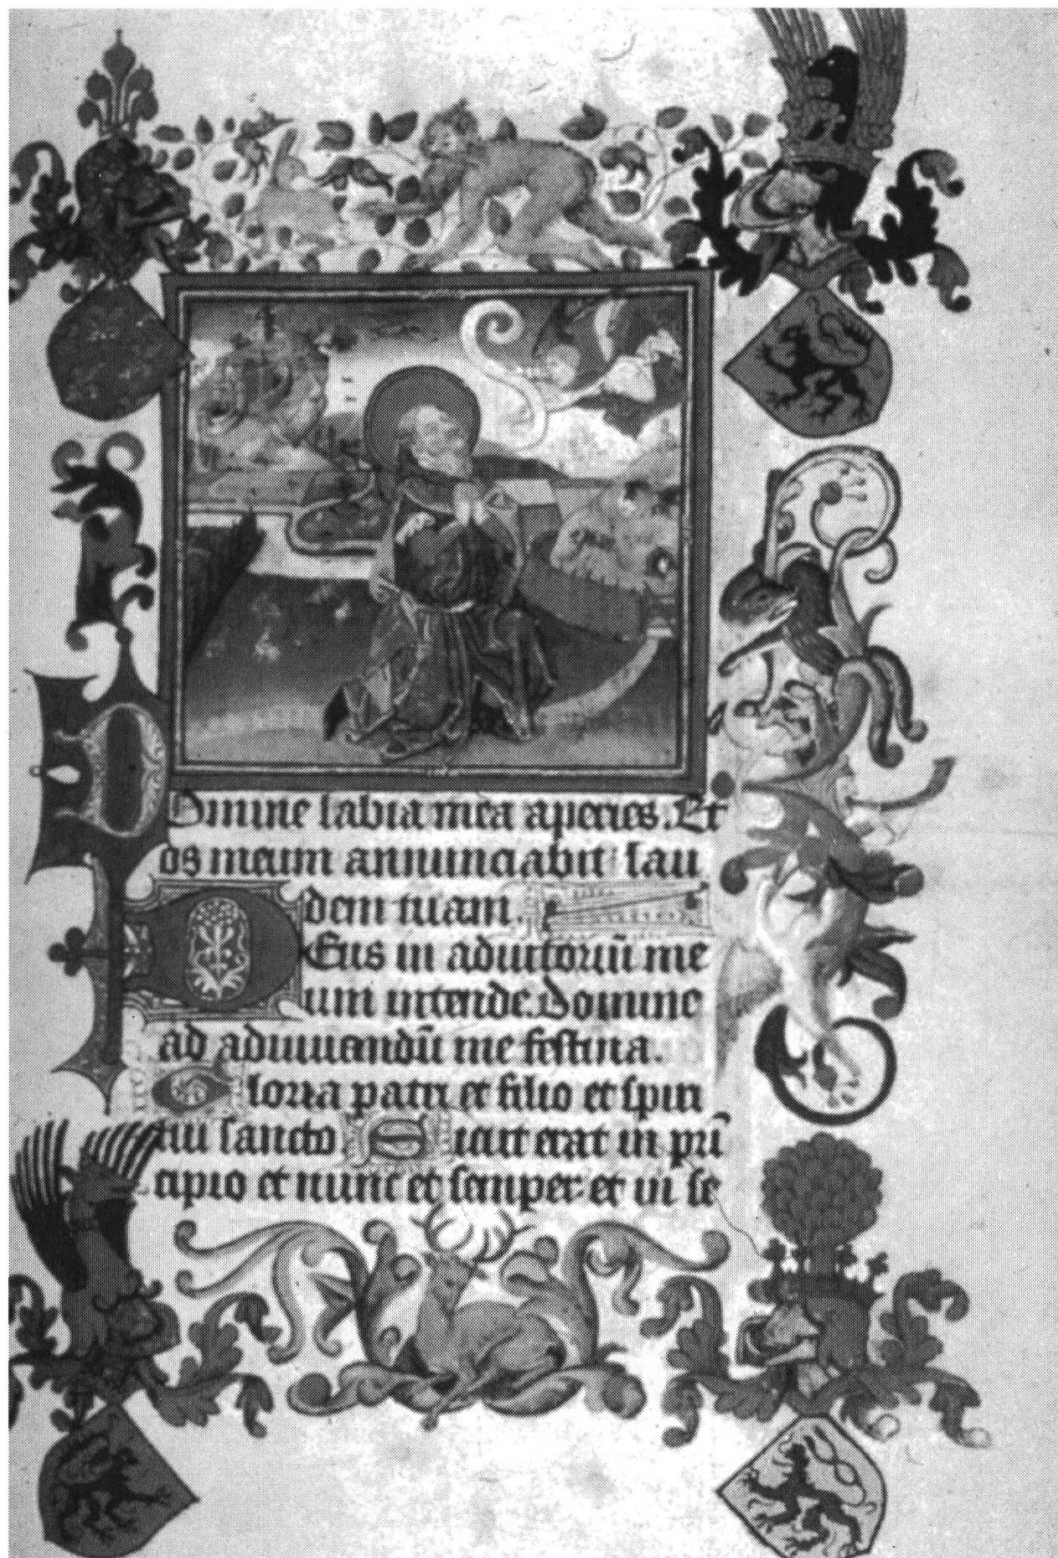 Domine labia mea aperies. Et
os meum annunciabit lau
dem tuam.
Deus in adiutoriū me
um intende. Domine
ad adiuuandū me festina.
Gloria patri et filio et spiri
tui sancto Sicut erat in pri̅
cipio et nunc et semper: et in se